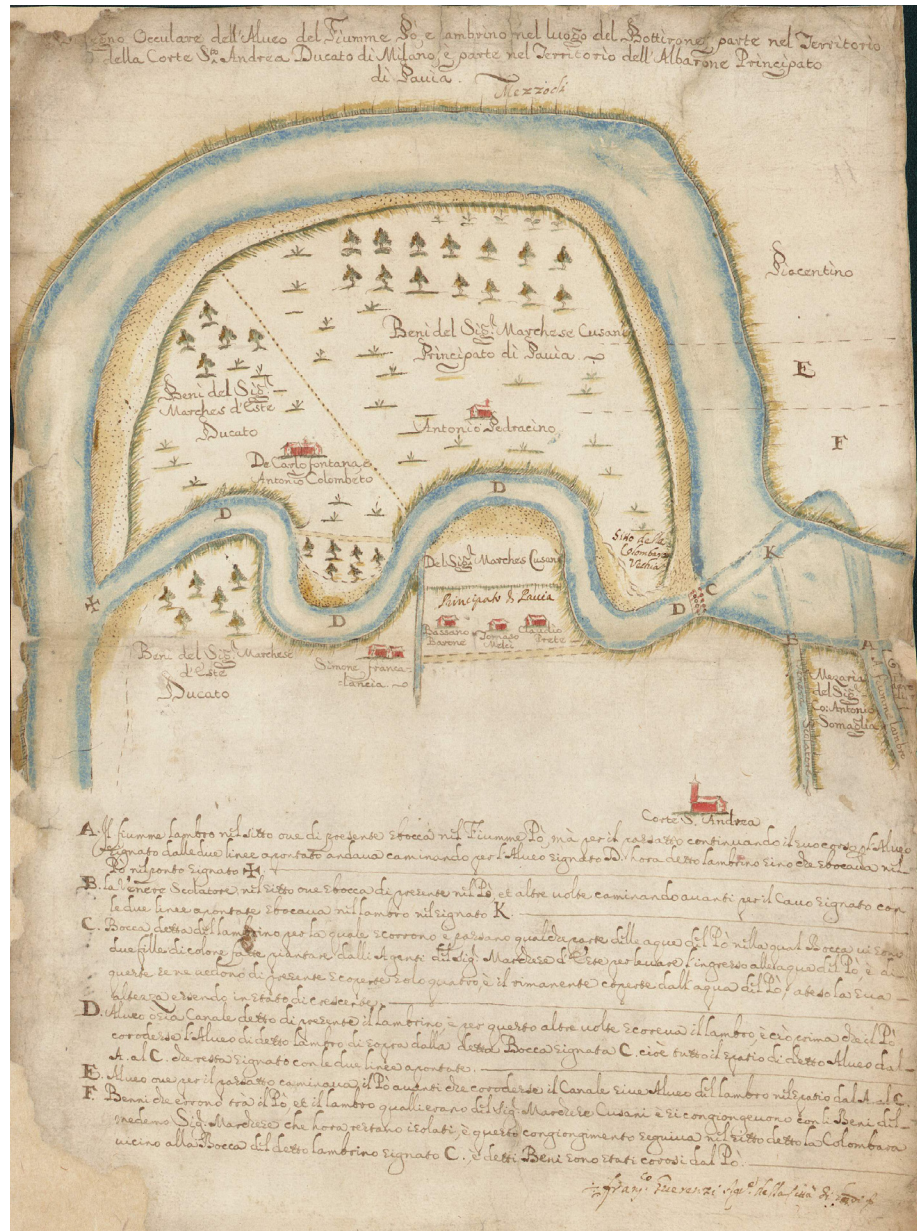 Occulare dell'Alveo del Fiumme Pò, e lambrino nel luogo del Bottirone, parte nel Territorio
della Corte S.to Andrea Ducato di Milano, è parte nel Territorio dell'Albarone Principato
di Pavia.
Mezzochi
Piacentino
E
F
Beni del Sig.r Marchese Cusani
Principato di Pavia
Beni del Sig.r
Marches d'Este
Ducato
Antonio Pedracino
De Carlo fontana, e
Antonio Colombeto
D
D
Sitto della
Colombara
Vechia
K
Del Sig.r Marches Cusani
Principato di Pavia
C
D
D
Bassano
Barone
Tomaso
Melci
Claudio
Prete
B
A
G
Beni del Sig.r Marchese
d'Este
Ducato
Simone franca
lancia
Mezaria
del Sig.r
Co: Antonio
Somaglia
Scolatore
Fiumme lambro
Corte S. Andrea
A. Il fiumme lambro nel sitto ove di presente sbocca nel Fiumme Pò, mà per il passatto continuando il suo corso per l'Alveo
segnato dalle due linee apontate andava caminando per l'Alveo signato D. hora detto lambrino sino che sbocava nel
Pò nel ponto signato ✠.
B. la Venere Scolatore, nel sitto ove sbocca di presente nel Pò, et altre volte caminando avanti per il Cavo signato con
le due linee apontate sbocava nel lambro nel signato K
C. Bocca detta del lambrino per la quale scorrono è passano qualche parte delle aque del Pò nella qual Bocca vi sono
due fille di colone fatte piantare dalli Agenti del Sig.r Marchese d'Este per levare l'ingresso alle aque del Pò, è di
queste se ne vedono di presente scoperte solo quatro, è il rimanente coperte dall'aqua del Pò, ateso la sua
alteza essendo in stato di crescente
D. Alveo o sia Canale detto di presente il lambrino, è per questo altre volte scoreva il lambro, è ciò prima che il Pò
corodesse l'Alveo di detto lambro di sopra dalla detta Bocca signata C. cioè tutto il spatio di detto Alveo dal
A. al C. che resta signato con le due linee apontate.
E. Alveo ove per il passatto caminava, il Pò avanti che corodesse il Canale sive Alveo del lambro nel spatio dal A. al C.
F. Benni che errono trà il Pò, et il lambro qualli erano del Sig.r Marchese Cusani è si congiongevono con li Beni del
medemo Sig.r Marchese che hora restano isolati, è questo congiongimento seguiva nel sitto detto la Colombara
vicino alla Bocca del detto lambrino signato C. è detti Beni sono stati corosi dal Pò.